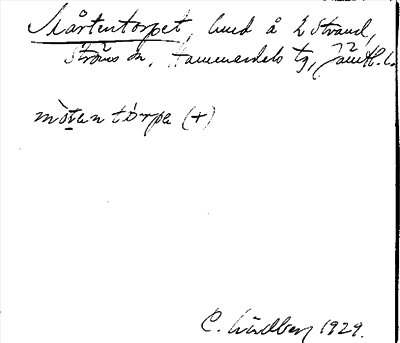 Mårtentorpet, lund å L Strand,
Ströms sn, Hammerdals tg, Jämtl. l.
mòtantórpa (+)
C. Lindberg 1929.